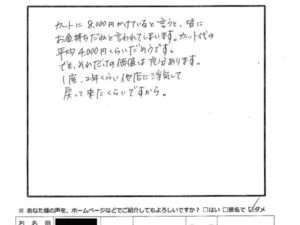 カットに8,000円かけていると言うと、皆に
お金持ちだねと言われてしまいます。カット代の
平均4,000円くらいだそうです。
でも、それだけの価値は充分あります。
1度、2年くらい他店に浮気して
戻って来たくらいですから。
※ あなた様の声を、ホームページなどでご紹介してもよろしいですか? □はい □匿名で ☑ダメ
お 名 前